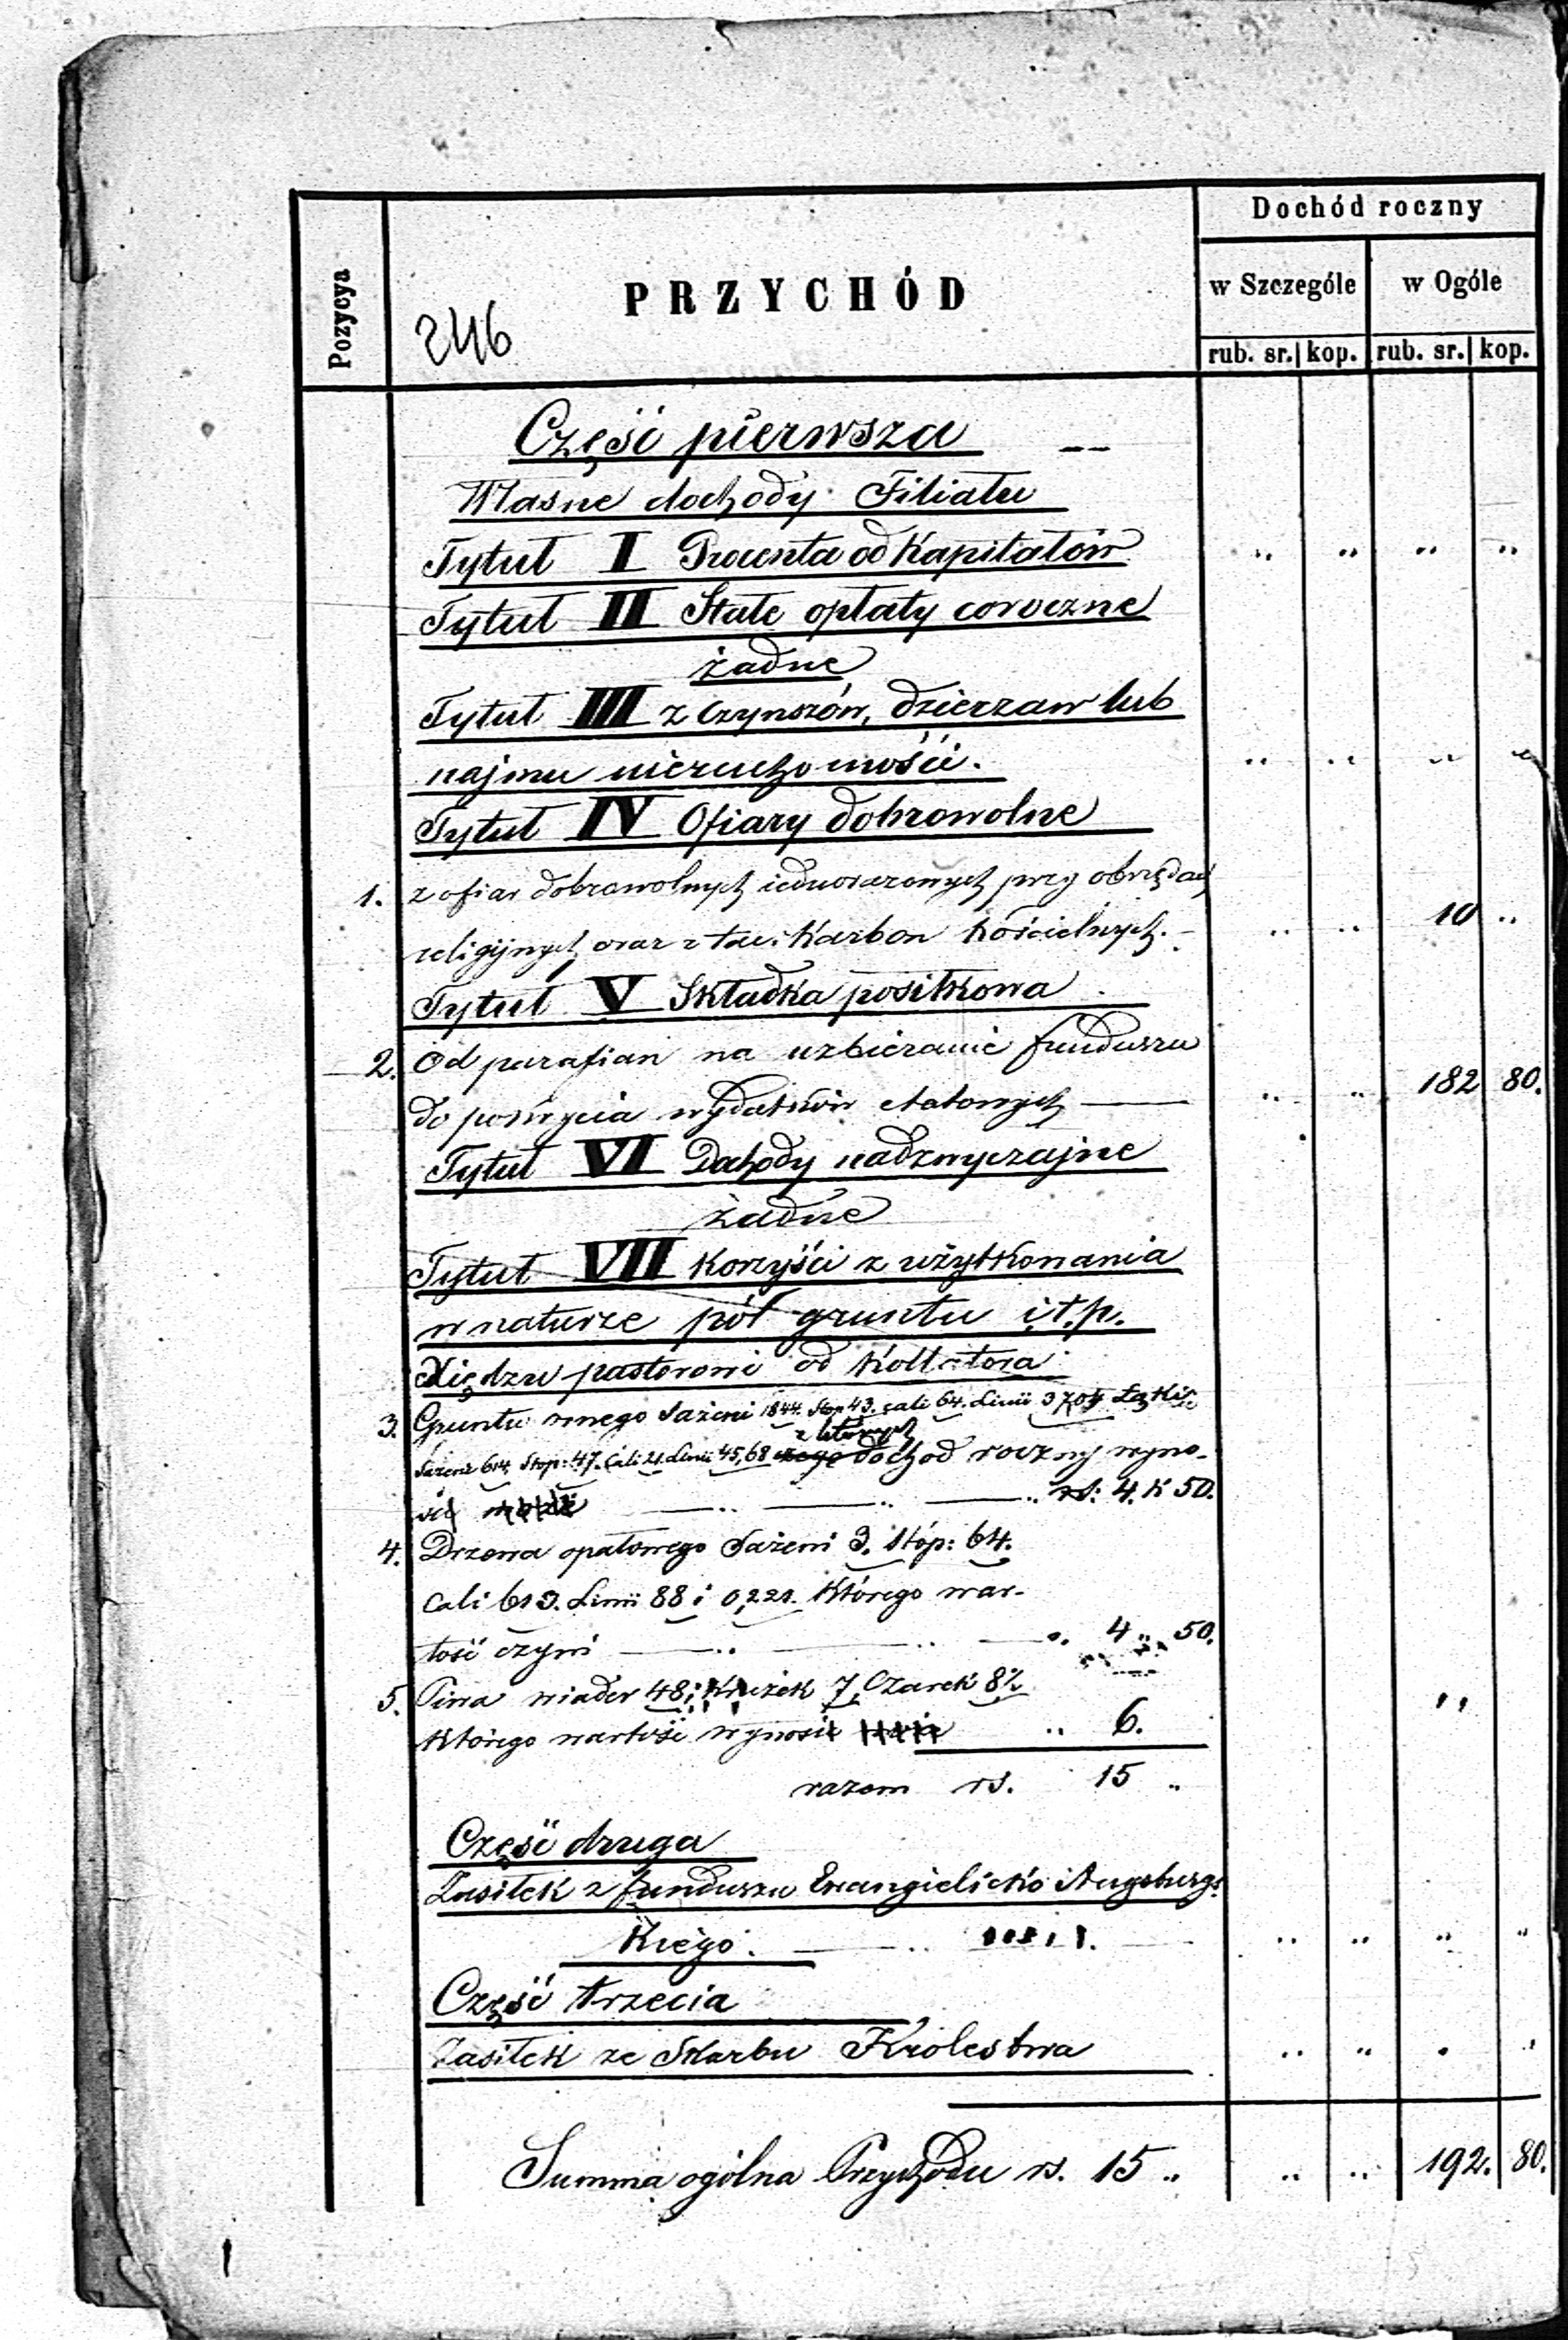 Dochód roczny
Pozycya
PRZYCHÓD
w Szczególe
w Ogóle
246
rub. sr. kop. rub. sr. kop.
Część pierwsza
Własne dochody Filiału
Tytuł I Procenta od Kapitałów " " " "
Tytuł II Stałe opłaty coroczne
żadne
Tytuł III z Czynszów, dzierzaw lub
najmu nieruchomości. " " " "
Tytuł IV Ofiary dobrowolne
1. z ofiar dobrowolnych jednorazowych przy obrzędach
religijnych oraz z tac i Karbon Kościelnych. " " 10 "
Tytuł V Składka positkowa
2. Od parafian na uzbieranie funduszu
do pokrycia wydatków etatowych " " 182 80.
Tytuł VI Dochody nadzwyczajne
żadne
Tytuł VII Korzyści z użytkowania
w naturze pół gruntu i.t.p.
Xiędzu pastorowi od Kollatora
3. Gruntu ornego Sażeni 1844. Stop 43. cali 64. Linii 3704 Łąki
z których
Sażeni 614. Stop: 47. Cali 21. Linii 45,68 dochod roczny wyno-
si rs: 4. K 50.
4. Drzewa opałowego Sażeni 3. Stóp: 64.
Cali 613. Linii 88 i 0,221. Którego war-
tość czyni " 4 " 50.
5. Piwa wiader 48; Kruzek 7, Czarek 8½
Którego wartość wynosi " 6.
razem rs. 15 "
Część druga
Zasiłek z funduszu Ewangielicko Augsburgs
Kiego. " " " "
Część trzecia
Zasiłek ze Skarbu Królestwa " " " "
Summa ogólna Przychodu rs. 15 " " " 192. 80.